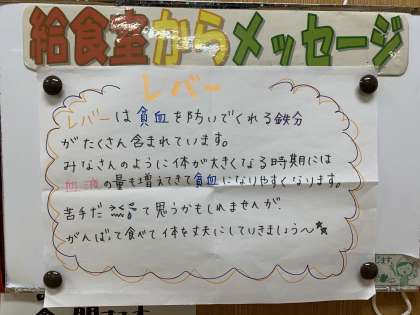 給食室からメッセージ
レバー
レバーは貧血を防いでくれる鉄分
がたくさん含まれています。
みなさんのように体が大きくなる時期には
血液の量も増えてきて貧血になりやすくなります。
苦手だ て思うかもしれませんが
がんばって食べて体を丈夫にしていきましょう〜
ます。